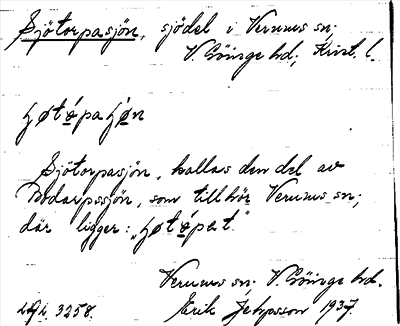 Sjötorpasjön, sjödel i Verums sn;
V. Göinge hd; Krist. l.
Sjötorpasjön, kallas den del av
Bodarpssjön, som tillhör Verums sn;
där ligger:
Verums sn; V. Göinge hd.
Erik Jeppsson 1937.
3258.